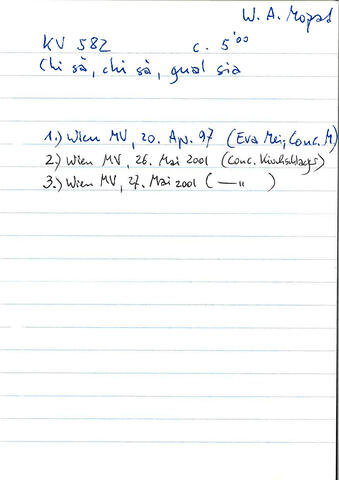 W. A. Mozart
KV 582 c. 5'00
Chi sà, chi sà, qual sia
1.) Wien MV, 20. Apr. 97 (Eva Mei, Conc. M)
2.) Wien MV, 26. Mai 2001 (Conc. Kirchschlager)
3.) Wien MV, 27. Mai 2001 ( —"— )